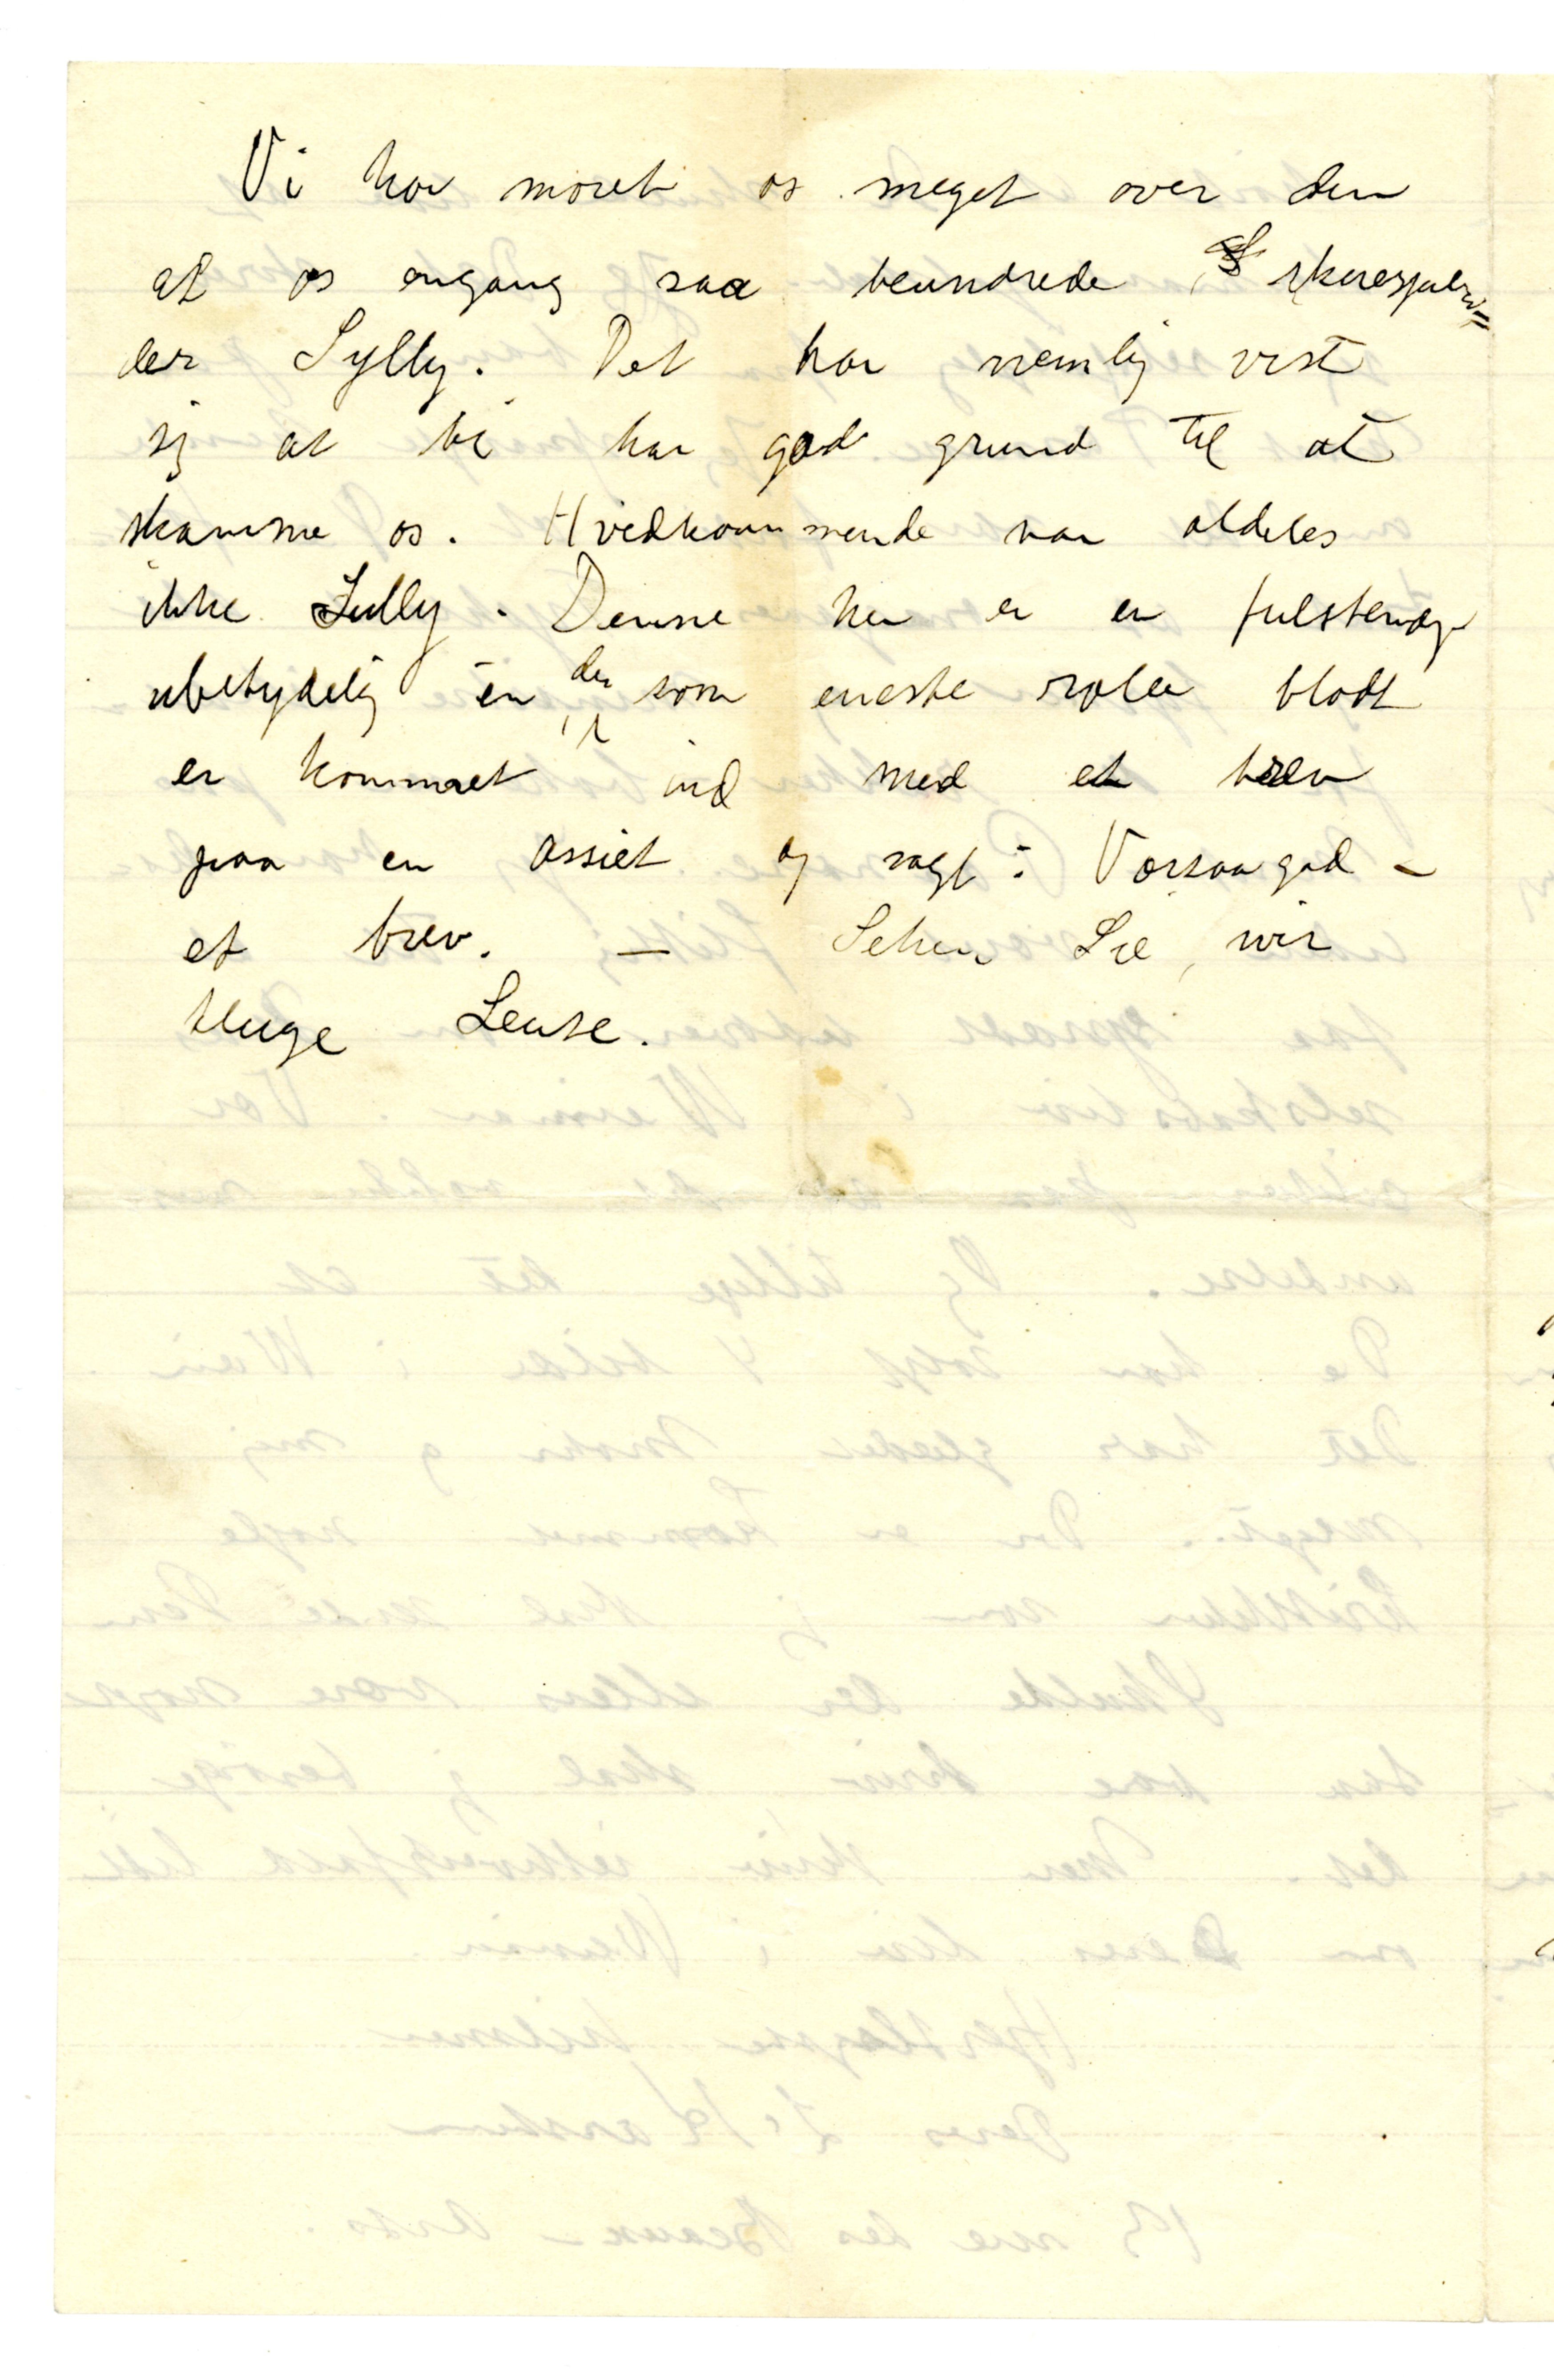 Vi har moret os meget over den
af os engang saa beundrede skuespil=
ler Sylly. Det har nemlig vist
sig at vi har god grund til at
skamme os. Hvedkommende var aldeles
ikke Lully. Denne her er en fulstendig
ubetydelig en der som eneste rolle blodt
er kommet ind med et brev
paa en assiet og sagt: Værsaagod –
et brev. — Sehen Sie, wir
kluge Leute.